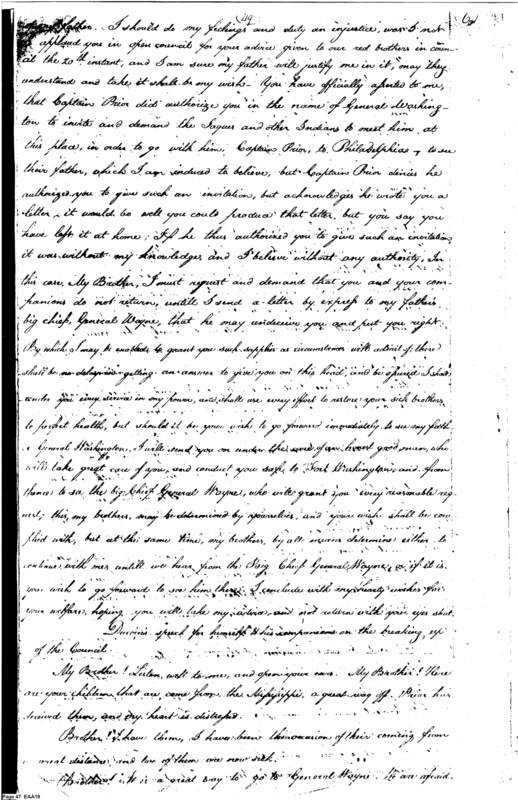 49
father. I should do my feelings and duty an injustice, was I not
to applaud you in open council for your advice given to our red brothers in coun-
at the 20th instant, and I am sure my father will justify me in it, may they
understand and take it shall be my wish. You have officially asserted to me,
that Captain Prior did authorize you in the name of General Washing-
ton to invite and demand the Saques and other Indians to meet him at
this place, in order to go with him, Captain Prior, to Philadelphia, to see
their father, which I am induced to believe, but Captain Prior denies he
authorized you to give such an invitation, but acknowledges he wrote you a
letter, it would be well you could produce that letter, but you say you
have left it at home; If he thus authorized you to give such an invitation,
it was without my knowledge, and I believe without any authority. In
this case, My Brother, I must request and demand that you and your com-
panions do not return, untill I send a letter by express to my father's
big chief, General Wayne, that he may undeceive you and put you right.
By which I may be enabled to grant you such supplies as circumstances will admit of; there
shall be no delay in getting an answer to give you on this head, and be assured I shall
render you every service in my power, and shall use every effort to restore your sick brothers
to perfect health, but should it be your wish to go forward immediately to see my fath-
er General Washington, I will send you on under the care of an honest good man, who
will take great care of you, and conduct you safe to Fort Washington, and from
thence to see the big Chief General Wayne, who will grant you every reasonable req-
uest; this, my brothers, may be determined by yourselves, and your wish shall be com-
plied with, but at the same time, my brothers, by all means determine either to
continue with me untill we hear from the Big Chief General Wayne, or if it is
you wish to go forward to see him there. I conclude with my hearty wishes for
your welfare, hoping you will take my advice, and not return with your eyes shut.
speech for himself & his companions on the breaking up
of the Council.
My Brother! Listen well to me, and open your ears. My Brother! Here
are your children that are come from the Mississippi, a great way off. Prior has
deceived them, and my heart is distressed.
Brother! I have them, I have been the occasion of their coming from
a great distance, and two of them are now sick.
Brother! It is a great way to go to General Wayne. We are afraid
Page 47 EAA19